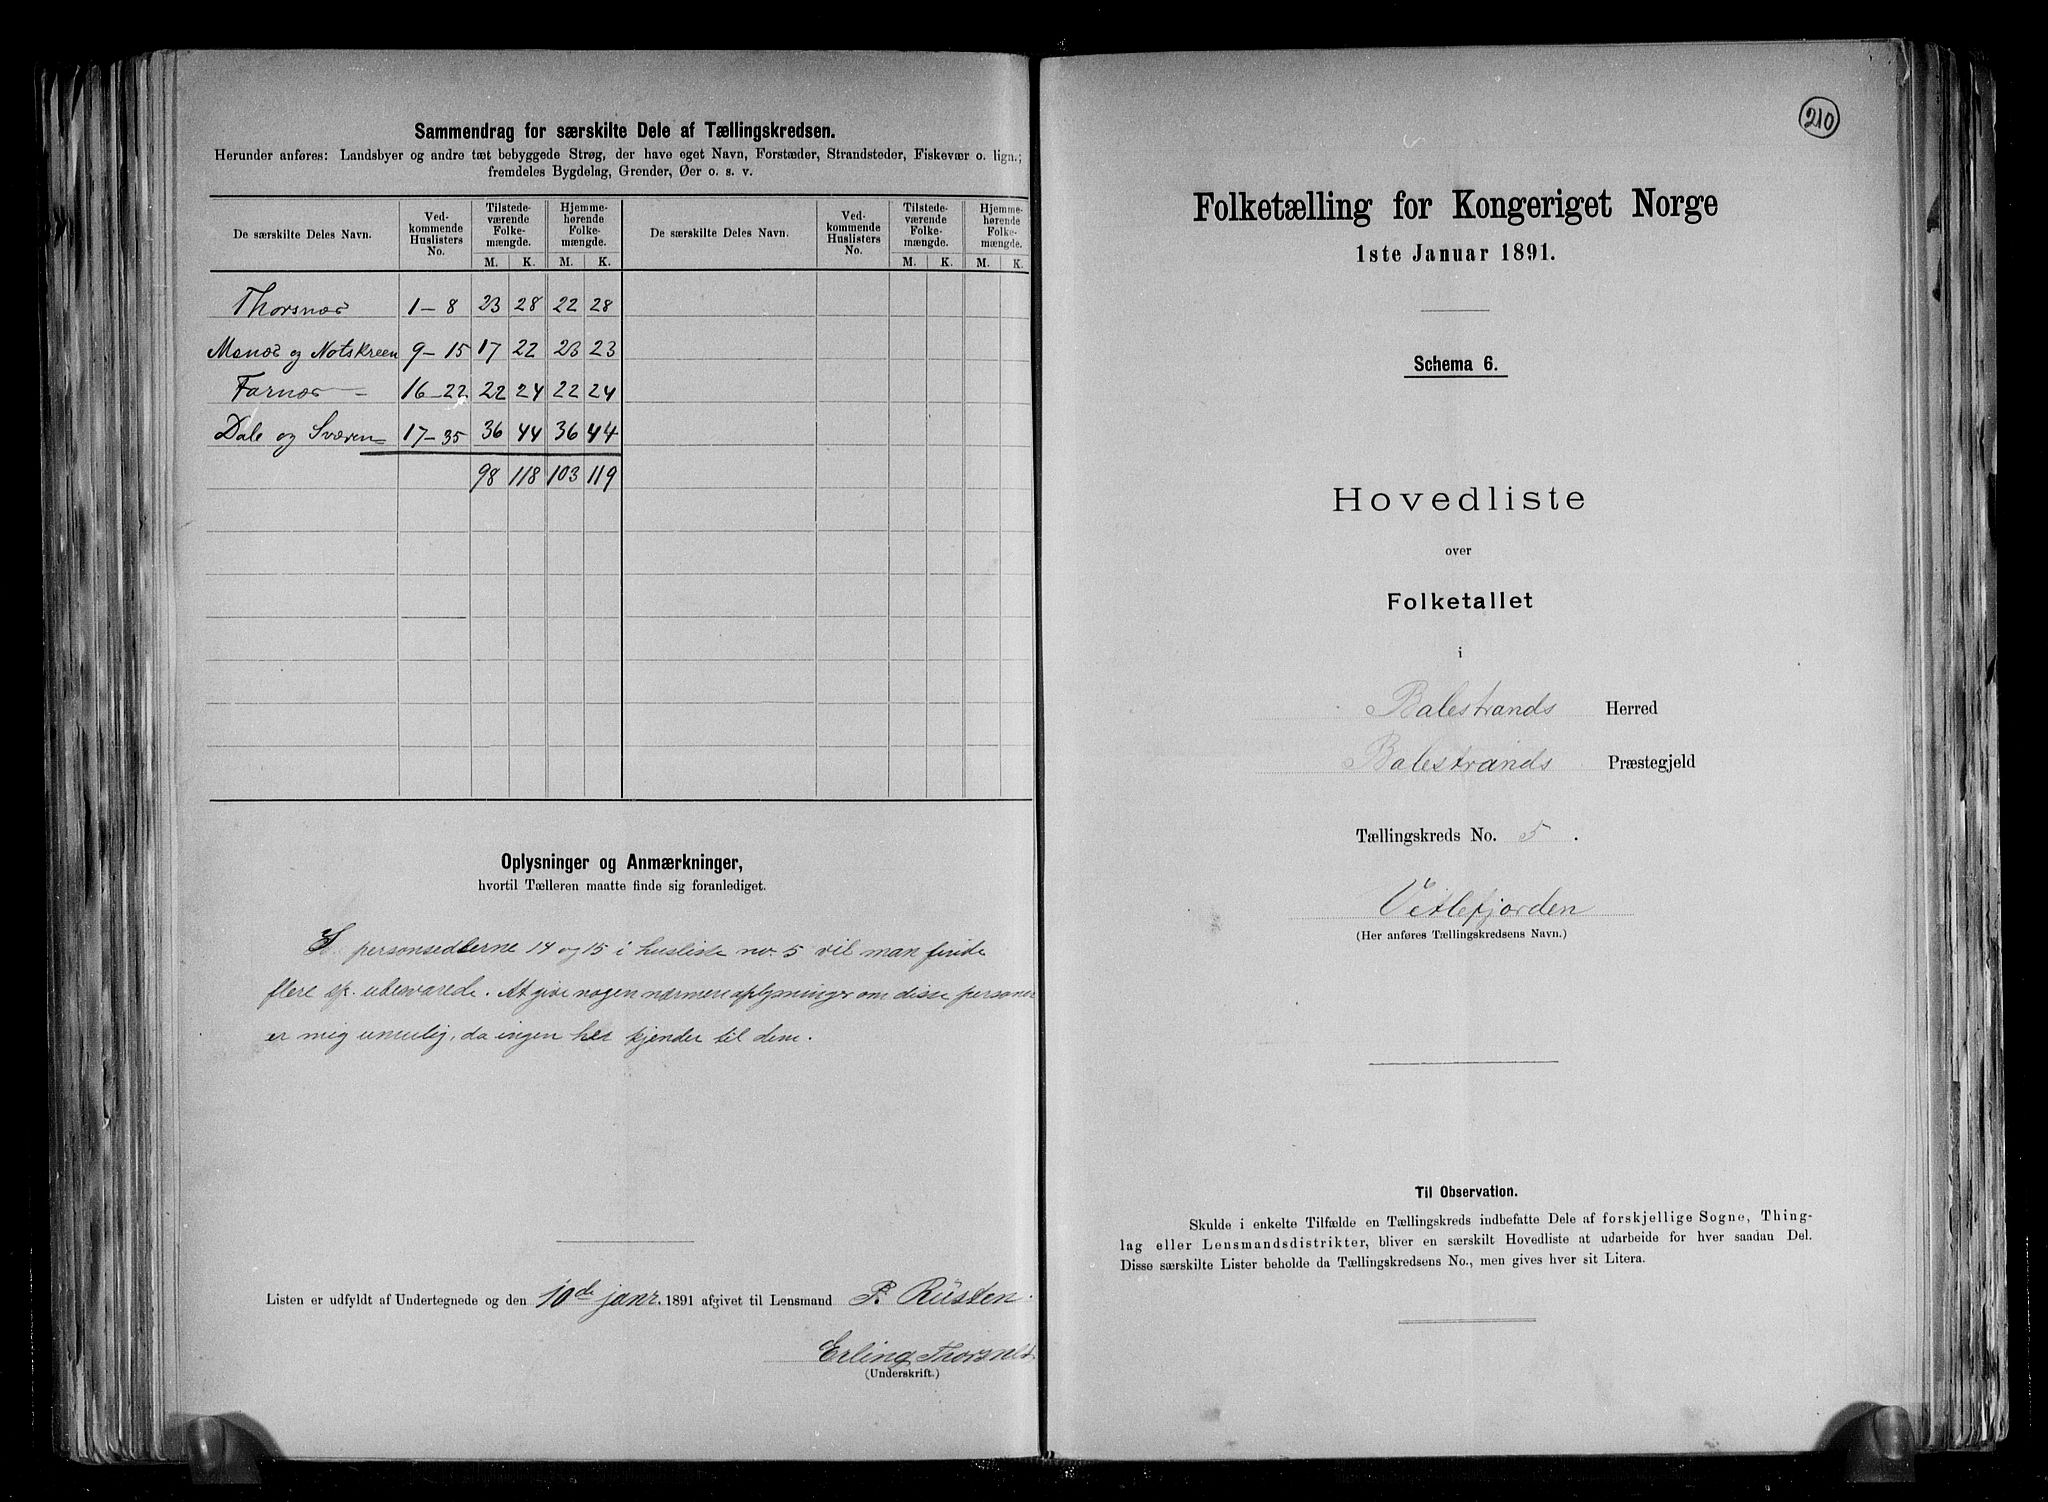 Sammendrag for særskilte Dele af Tællingskredsen.
Herunder anføres: Landsbyer og andre tæt bebyggede Strøg, der have eget Navn, Forstæder, Strandsteder, Fiskevær o. lign.;
fremdeles Bygdelag, Grender, Øer o. s. v.
De særskilte Deles Navn. Ved-kommende Huslisters No. Tilstede-værende Folke-mængde. Hjemme-hørende Folke-mængde. De særskilte Deles Navn. Ved-kommende Huslisters No. Tilstede-værende Folke-mængde. Hjemme-hørende Folke-mængde.
M. K. M. K. M. K. M. K.
Thorsnæs 1-8 23 28 22 28
Menæs og Notskreen 9-15 17 22 23 23
Farnæs 16-22 22 24 22 24
Dale og Sværen 17-35 36 44 36 44
98 118 103 119
Oplysninger og Anmærkninger,
hvortil Tælleren maatte finde sig foranlediget.
I personsedlerne 14 og 15 i husliste no. 5 vil man finde
flere sp. ubesvarede. At give nogen nærmere oplysninger om disse personer
er mig umulig, da ingen her kjender til dem.
Listen er udfyldt af Undertegnede og den 10de janr. 1891 afgivet til Lensmand P. Rüsten.
Erling Thorsnes
(Underskrift.)
210
Folketælling for Kongeriget Norge
1ste Januar 1891.
Schema 6.
Hovedliste
over
Folketallet
i
Balestrands Herred
Balestrands Præstegjeld
Tællingskreds No. 5.
Vetlefjorden
(Her anføres Tællingskredsens Navn.)
Til Observation.
Skulde i enkelte Tilfælde en Tællingskreds indbefatte Dele af forskjellige Sogne, Thing-
lag eller Lensmandsdistrikter, bliver en særskilt Hovedliste at udarbeide for hver saadan Del.
Disse særskilte Lister beholde da Tællingskredsens No., men gives hver sit Litera.